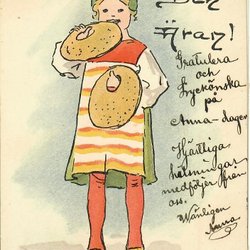 Den
Äran!
Gratulera
och
Lyckönska
på
Anna-dagen
Hjärtliga
helsningar
medföljer från
oss.
Vänligen
Anna